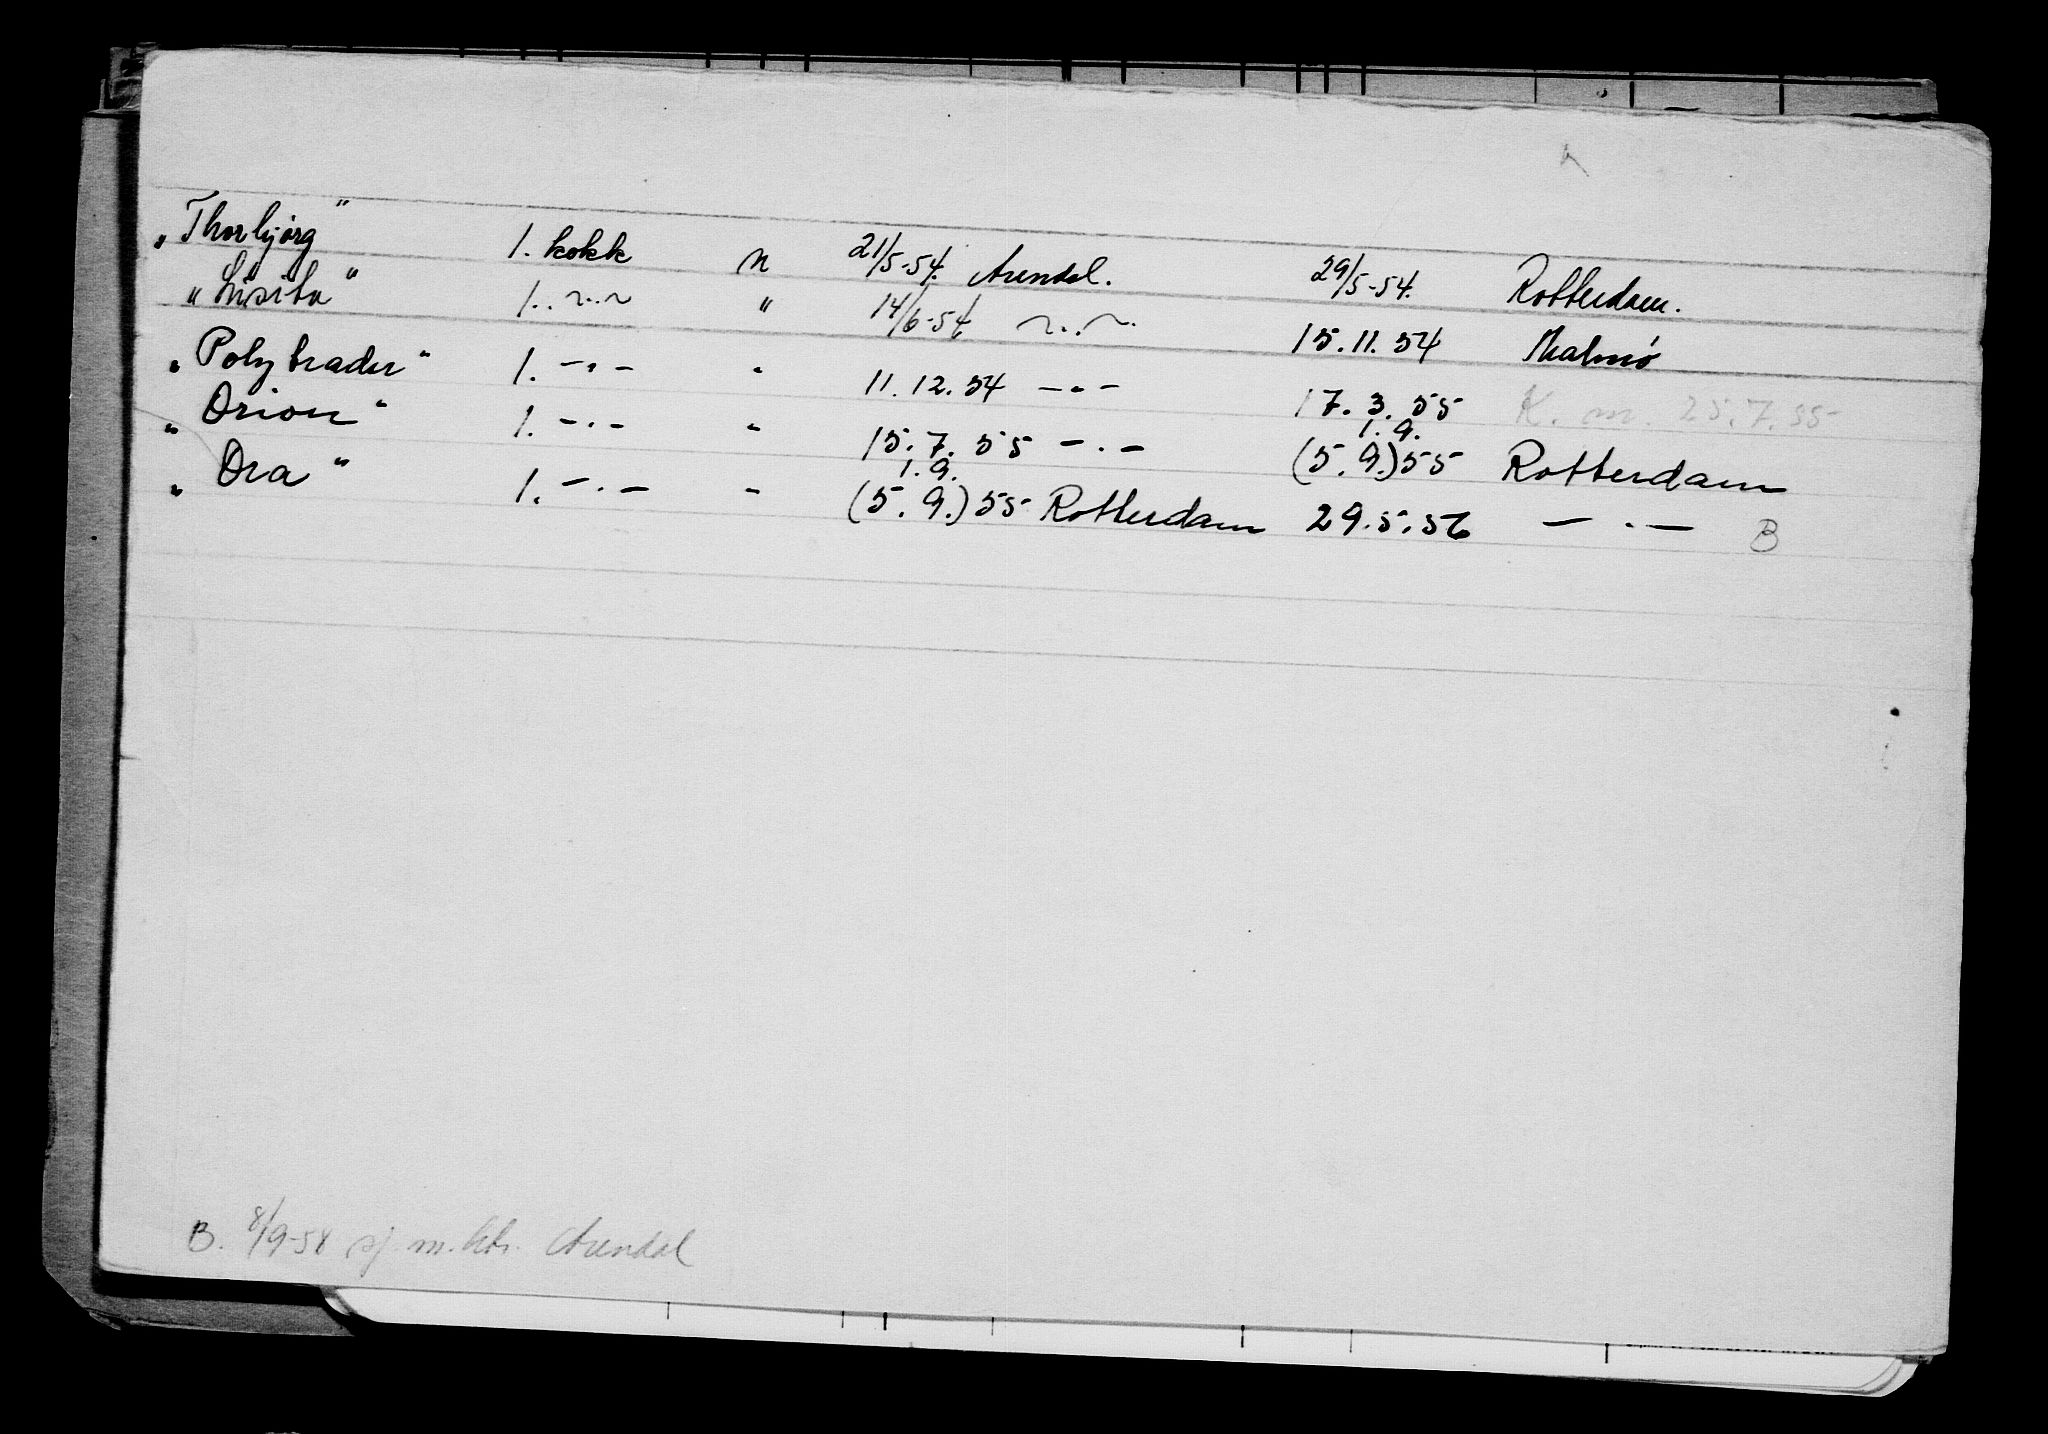 „Thorbjørg" 1. kokk n 21/5-54. Arendal. 29/5-54. Rotterdam.
" 1. -..- " 14/6-54 -..- 15.11.54 Malmø
„Polytrader" 1. -"- " 11.12.54 -"- 17.3.55 K. m. 25.7.55
„Orion" 1. -"- " 15.7.55 -"- 1.9. (5.9.)55 Rotterdam
„Ora" 1. -"- " 1.9. (5.9.)55 Rotterdam 29.5.56 -"- B
B. 8/9-58 sj. m. ktr. Arendal